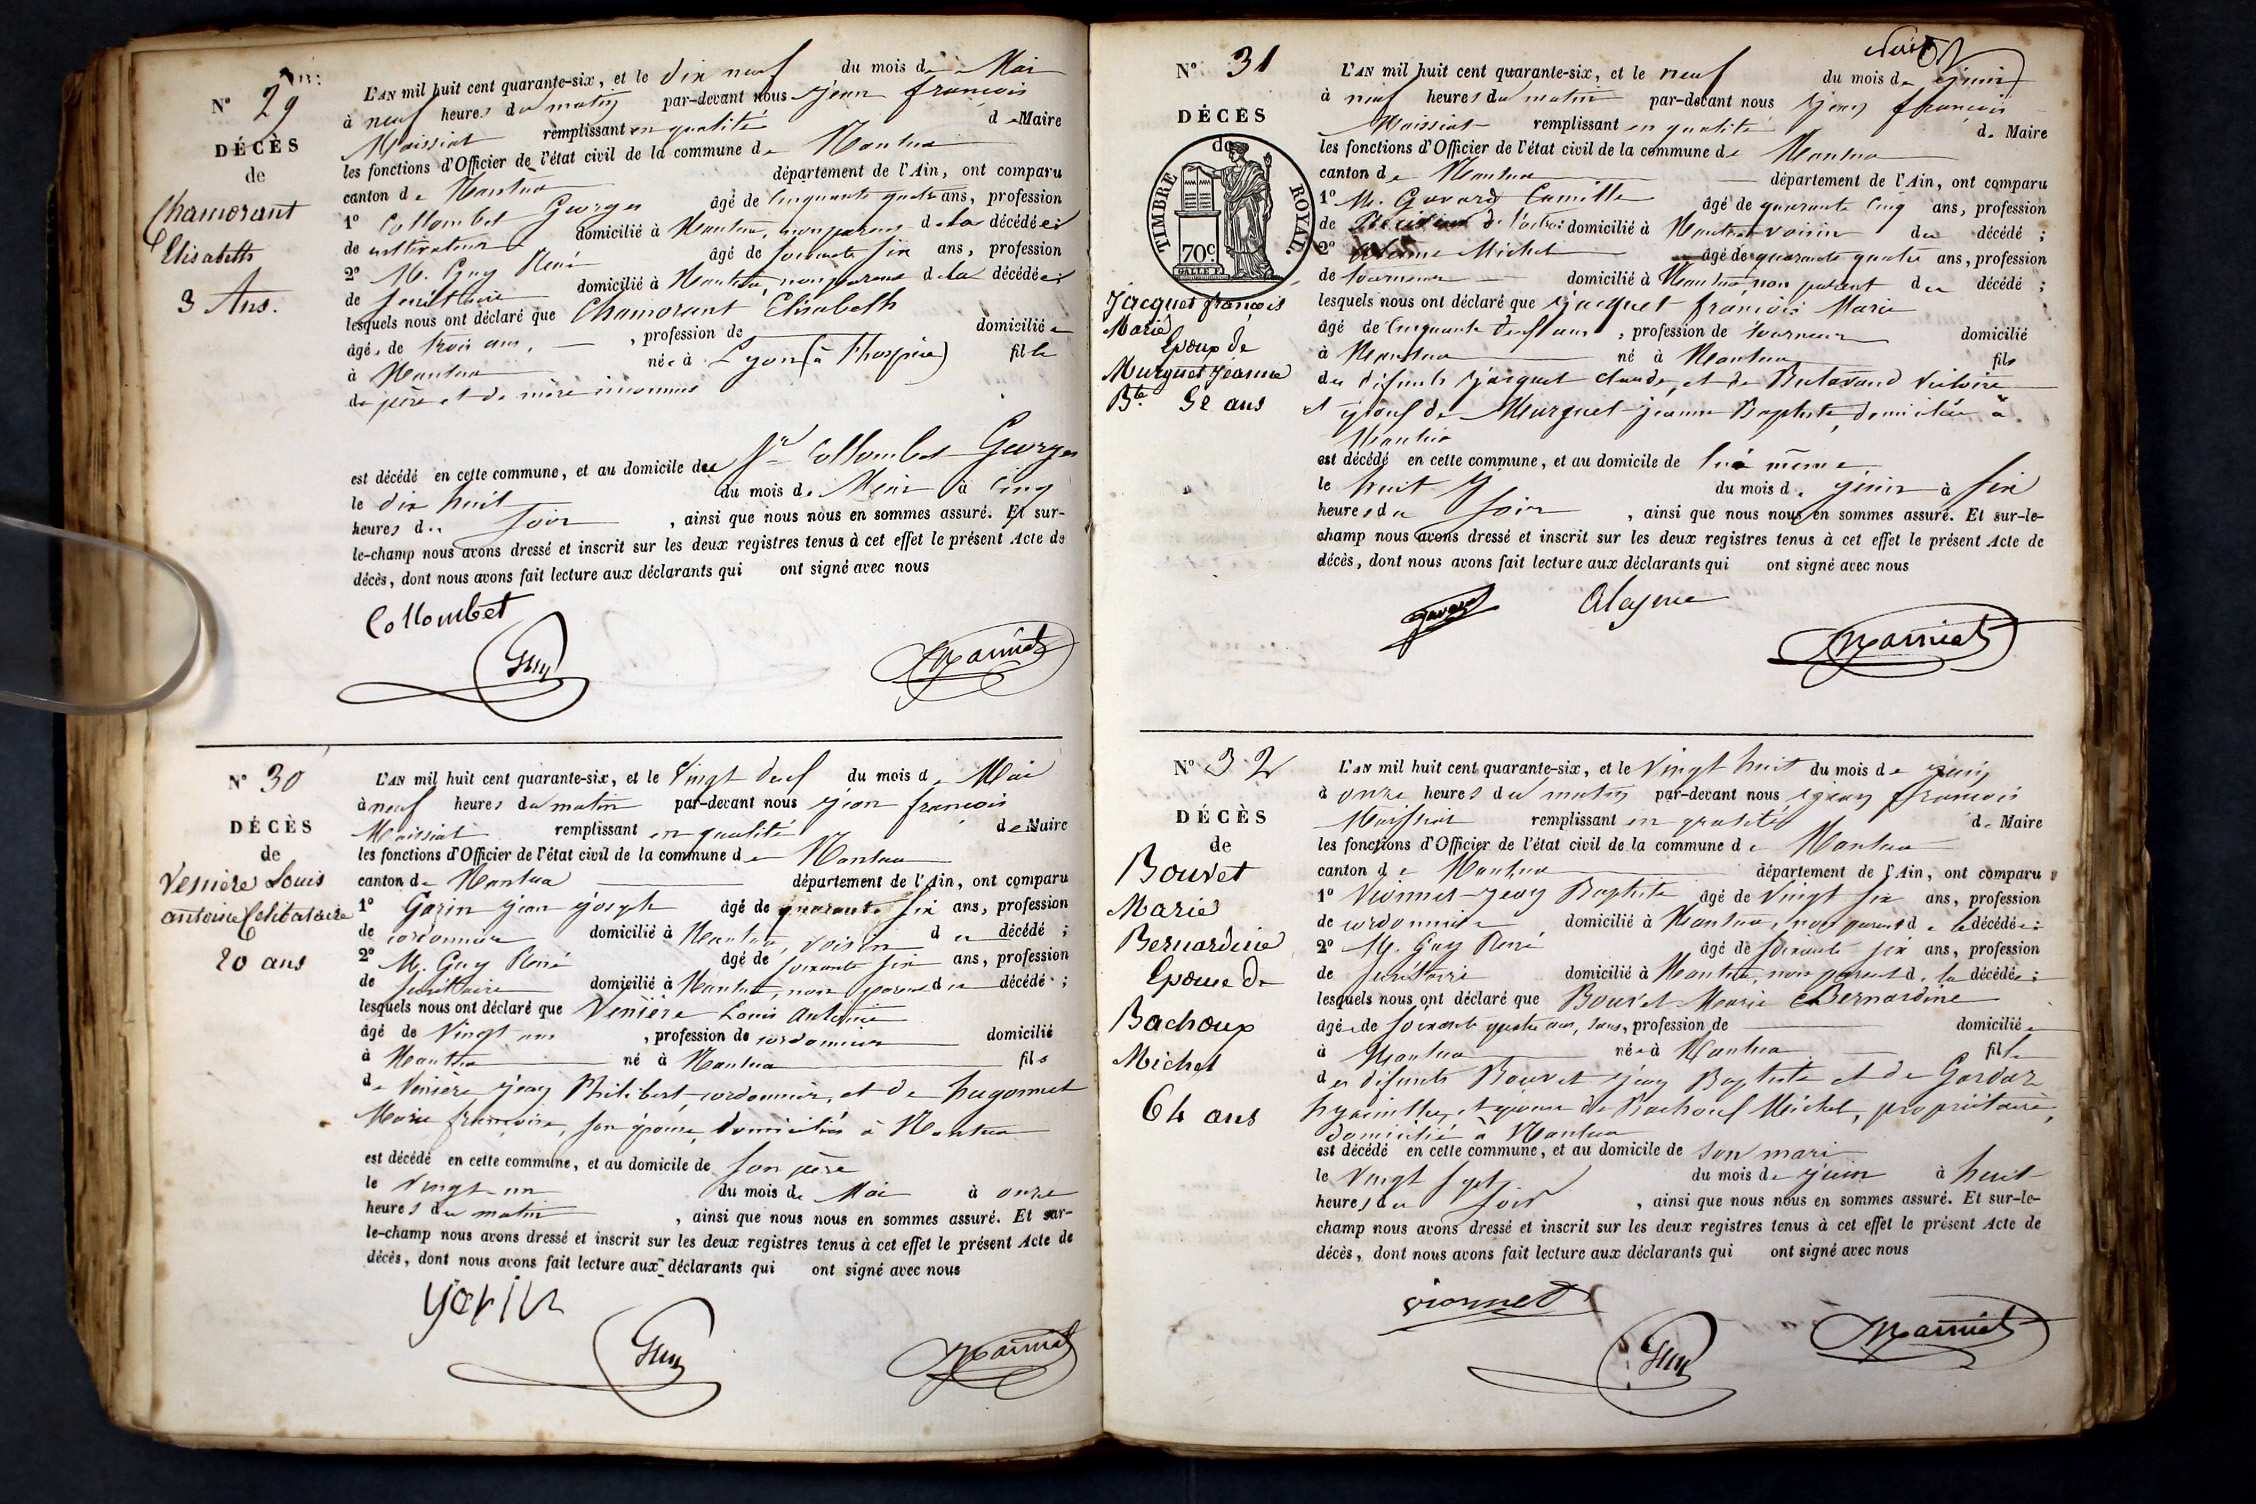 N° 29
DÉCÈS
de
Chamorant
Elisabeth
3 Ans.
L'AN mil huit cent quarante-six, et le dix neuf du mois de Mai
à neuf heures du matin par-devant nous jean françois
Moissiat remplissant en qualité de Maire
les fonctions d'Officier de l'état civil de la commune de Nantua
canton de Nantua département de l'Ain, ont comparu
1° Collombet Georges âgé de Cinquante quatre ans, profession
de cultivateur domicilié à Nantua, non parent de la décédée;
2° M. Guy René âgé de soixante six ans, profession
de secrétaire domicilié à Nantua, non parent de la décédée;
lesquels nous ont déclaré que Chamorant Elisabeth
âgée de trois ans, profession de domiciliée
à Nantua née à Lyon (à l'hospice) fille
de père et de mère inconnus
est décédé en cette commune, et au domicile du Sr Collombet Georges
le dix huit du mois de Mai à Cinq
heures du soir, ainsi que nous nous en sommes assuré. Et sur-
le-champ nous avons dressé et inscrit sur les deux registres tenus à cet effet le présent Acte de
décès, dont nous avons fait lecture aux déclarants qui ont signé avec nous
Collombet
Guy
N° 30
DÉCÈS
de
Venière Louis
antoine Celibataire
20 ans
L'AN mil huit cent quarante-six, et le Vingt deux du mois de Mai
à neuf heures du matin par-devant nous jean françois
Moissiat remplissant en qualité de Maire
les fonctions d'Officier de l'état civil de la commune de Nantua
canton de Nantua département de l'Ain, ont comparu
1° Garin jean joseph âgé de quarante six ans, profession
de cordonnier domicilié à Nantua, voisin du décédé;
2° M. Guy René âgé de soixante six ans, profession
de secrétaire domicilié à Nantua, non parent du décédé;
lesquels nous ont déclaré que Venière Louis antoine
âgé de Vingt ans, profession de cordonnier domicilié
à Nantua né à Nantua fils
de Venière jean Philibert cordonnier, et de hugonnet
Marie françoise, son épouse, domiciliés à Nantua
est décédé en cette commune, et au domicile de son père
le vingt un du mois de Mai à onze
heures du matin, ainsi que nous nous en sommes assuré. Et sur-
le-champ nous avons dressé et inscrit sur les deux registres tenus à cet effet le présent Acte de
décès, dont nous avons fait lecture aux déclarants qui ont signé avec nous
garin
Guy
N° 31
DÉCÈS
de
TIMBRE ROYAL.
70c
Jacquet françois
Marie
Epoux de
Murguet Jeanne
Bte. 52 ans
L'AN mil huit cent quarante-six, et le neuf du mois de juin
à neuf heures du matin par-devant nous jean françois
Moissiat remplissant en qualité de Maire
les fonctions d'Officier de l'état civil de la commune de Nantua
canton de Nantua département de l'Ain, ont comparu
1° M. Gavard Camille âgé de quarante cinq ans, profession
de domicilié à Nantua voisin du décédé;
2° Michel âgé de quarante quatre ans, profession
de tourneur domicilié à Nantua non parent du décédé;
lesquels nous ont déclaré que jacquet françois Marie
âgé de Cinquante deux ans, profession de tourneur domicilié
à Nantua né à Nantua fils
des défunts jacquet claude, et de Victoire
et époux de Murguet jeanne Baptiste, domiciliée à
Nantua
est décédé en cette commune, et au domicile de lui même
le huit du mois de juin à six
heures du soir, ainsi que nous nous en sommes assuré. Et sur-le-
champ nous avons dressé et inscrit sur les deux registres tenus à cet effet le présent Acte de
décès, dont nous avons fait lecture aux déclarants qui ont signé avec nous
gavard
N° 32
DÉCÈS
de
Bouvet
Marie
Bernardine
Epouse de
Bachoux
Michel
64 ans
L'AN mil huit cent quarante-six, et le Vingt huit du mois de juin
à onze heures du matin par-devant nous jean françois
Moissiat remplissant en qualité de Maire
les fonctions d'Officier de l'état civil de la commune de Nantua
canton de Nantua département de l'Ain, ont comparu
1° Vionnet jean Baptiste âgé de Vingt six ans, profession
de cordonnier domicilié à Nantua, non parent de la décédée;
2° M. Guy René âgé de soixante six ans, profession
de secrétaire domicilié à Nantua, non parent de la décédée;
lesquels nous ont déclaré que Bouvet Marie Bernardine
âgée de soixante quatre ans, sans, profession de domiciliée
à Nantua née à Nantua fille
des défunts Bouvet jean Baptiste et de Gardaz
hyacinthe, et épouse de Bachoux Michel, propriétaire,
domicilié à Nantua
est décédé en cette commune, et au domicile de son mari
le Vingt sept du mois de juin à huit
heures du soir, ainsi que nous nous en sommes assuré. Et sur-le-
champ nous avons dressé et inscrit sur les deux registres tenus à cet effet le présent Acte de
décès, dont nous avons fait lecture aux déclarants qui ont signé avec nous
vionnet
Guy